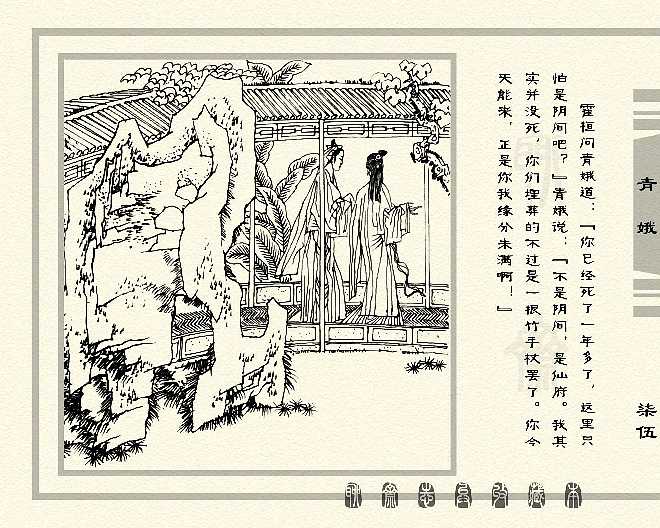 霍桓问青娥道：『你已经死了一年多了，这里只
怕是阴间吧？』青娥说：『不是阴间，是仙府。我其
实并没死，你们埋葬的不过是一根竹手杖罢了。你今
天能来，正是你我缘分未满啊！』
青娥
柒伍
聊斋志异收藏本